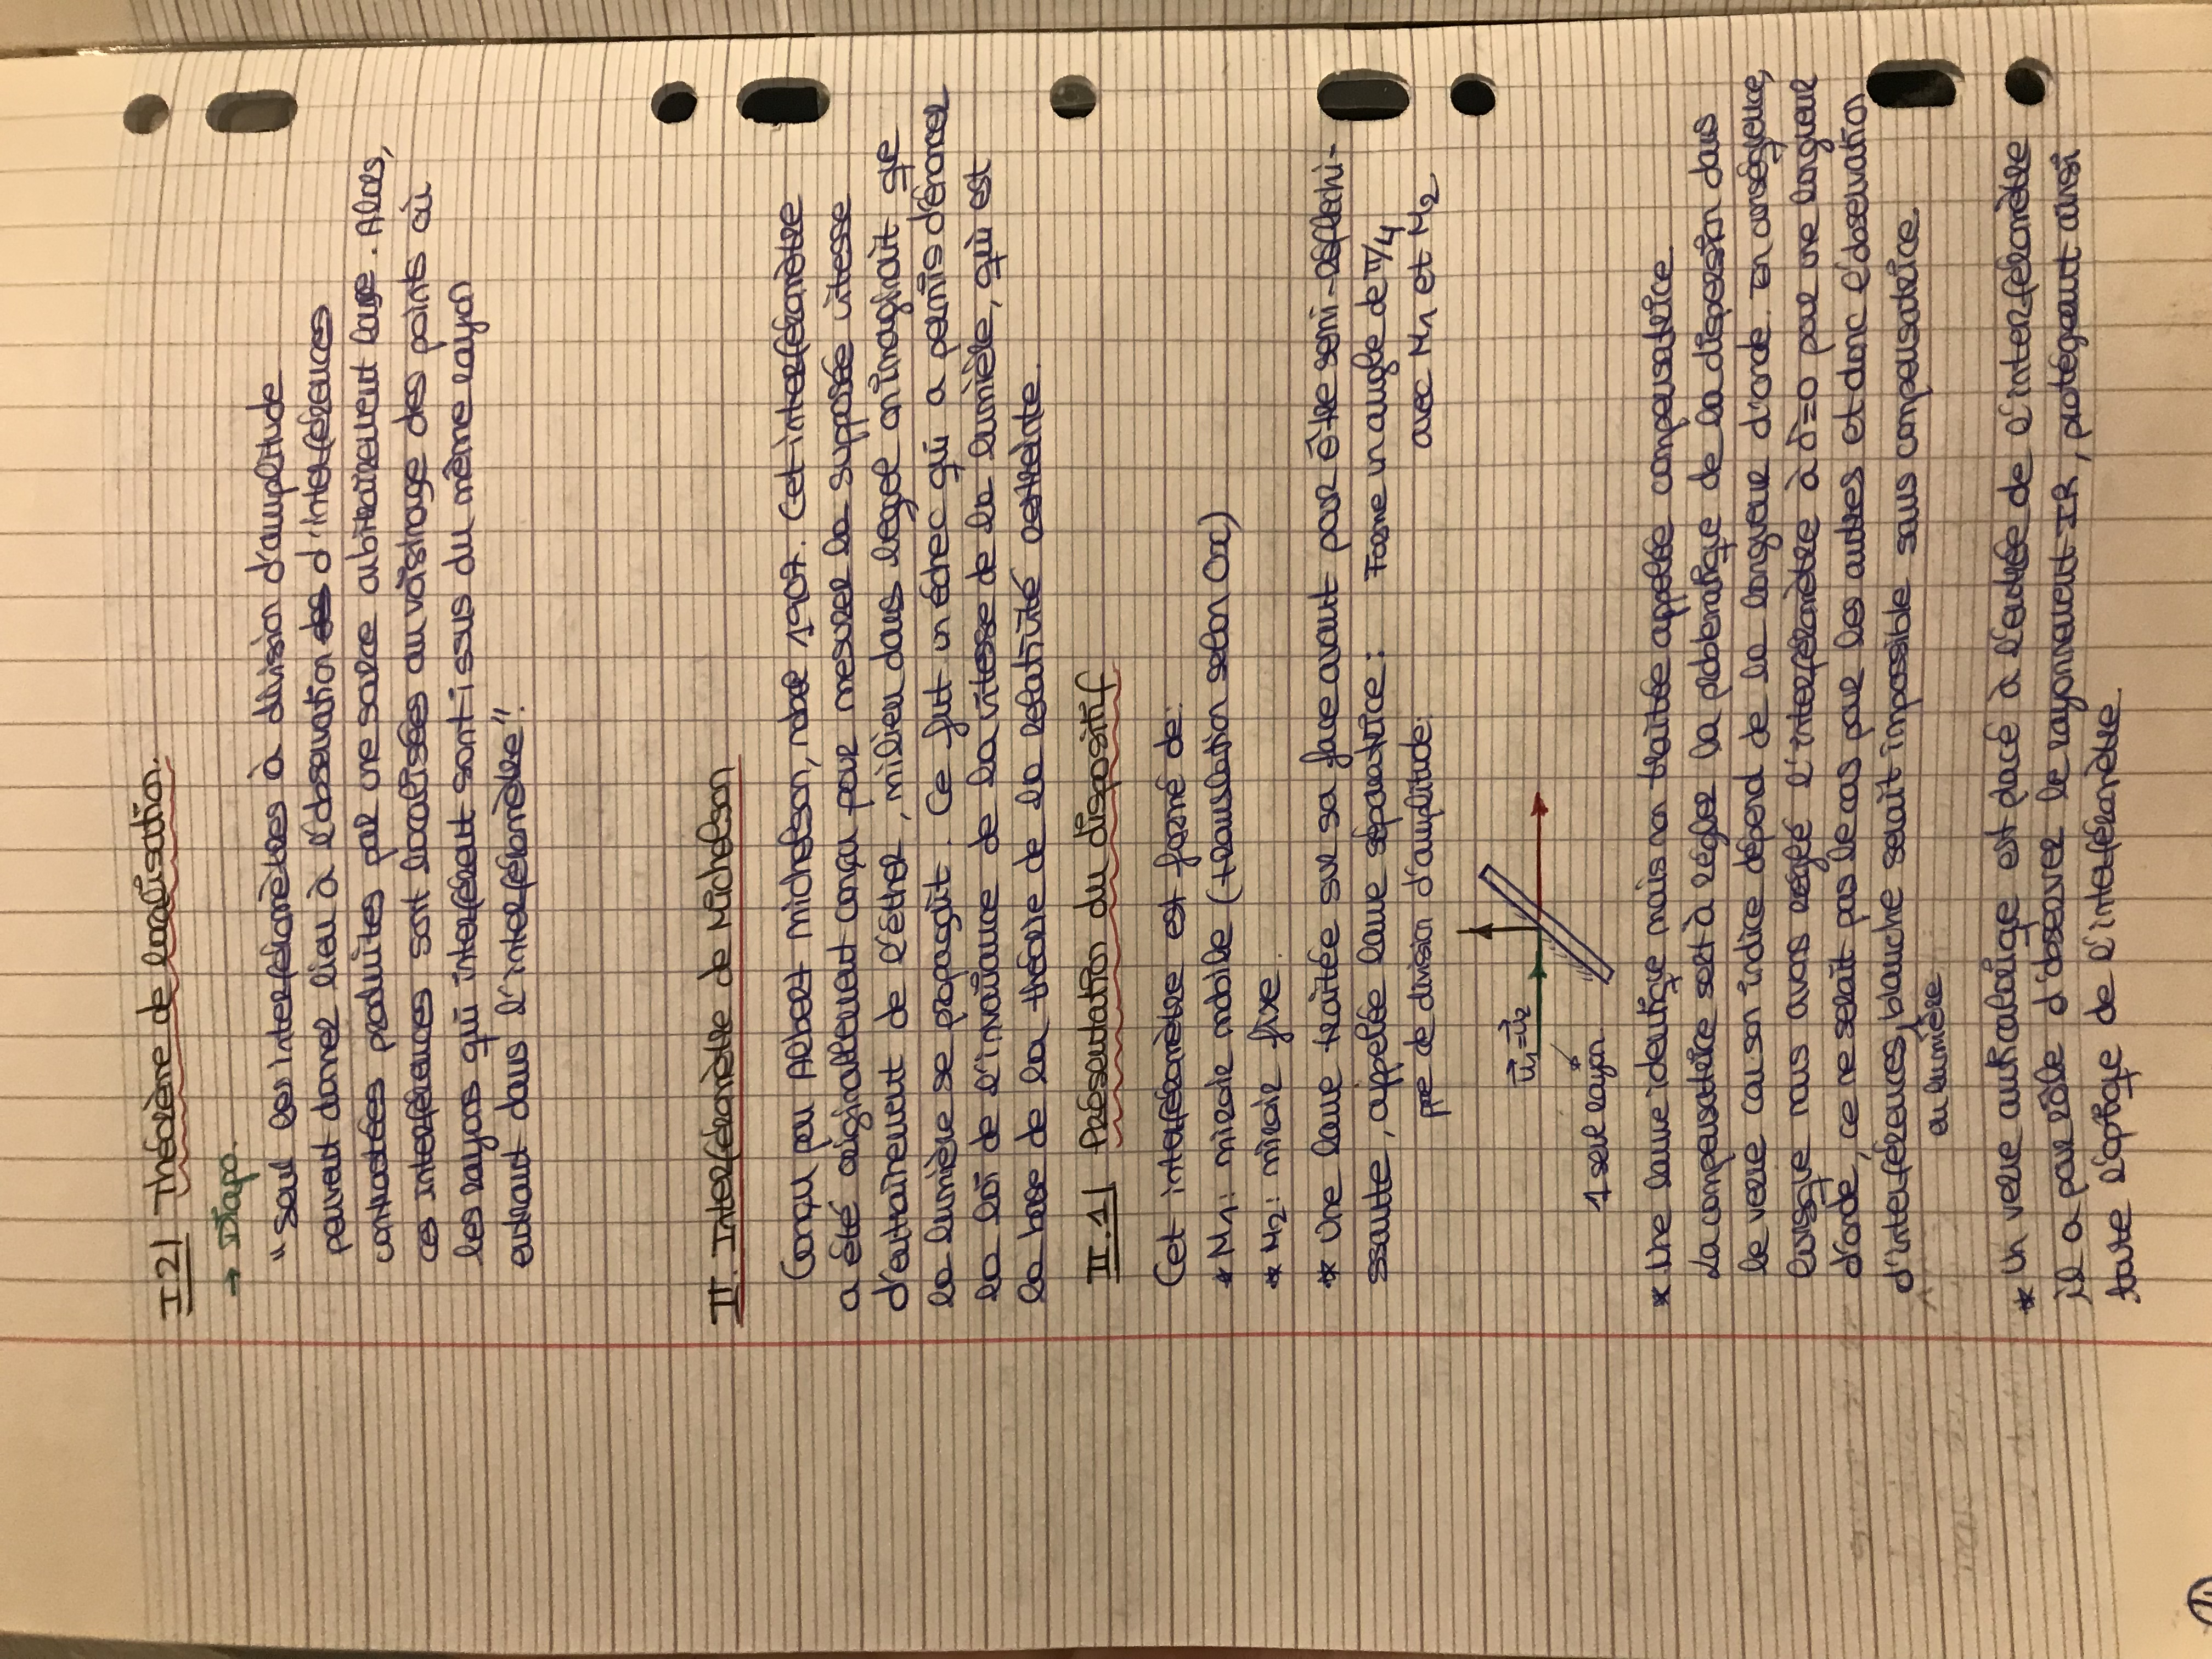 I 2/ Théorème de localisation.
→ Diapo.
"Seul les interféromètres à division d'amplitude
peuvent donner lieu à l'observation des d'interférences
contrastées produites par une source arbitrairement large. Alors,
ces interférences sont localisées au voisinage des points où
les rayons qui interfèrent sont issus du même rayon
entrant dans l'interféromètre".
II. Interféromètre de Michelson
Conçu par Albert Michelson, nobel 1907. Cet interféromètre
a été originallement conçu pour mesurer la supposée vitesse
d'entraînement de l'éther, milieu dans lequel on imaginait que
la lumière se propageait. Ce fut un échec qui a permis d'énoncer
la loi de l'invariance de la vitesse de la lumière, qui est
la base de la théorie de la relativité restreinte.
II.1/ Présentation du dispositif
Cet interféromètre est formé de:
* M1: miroir mobile (translation selon Ox)
* M2: miroir fixe.
* Une lame traitée sur sa face avant pour être semi-réfléchi-
ssante, appelée lame séparatrice: Forme un angle de π/4
ppe de division d'amplitude: avec M1 et M2
u1 = u2
1 seul rayon
* Une lame identique mais non traitée appelée compensatrice.
La compensatrice sert à régler la problématique de la dispersion dans
le verre car son indice dépend de la longueur d'onde. En conséquence,
lorsque nous avons réglé l'interféromètre à δ=0 pour une longueur
d'onde, ce ne serait pas le cas pour les autres et donc l'observation
d'interférences blanche serait impossible sans compensatrice.
en lumière
* Un verre anticalorique est placé à l'entrée de l'interféromètre
il a pour rôle d'observer le rayonnement IR, protégeant ainsi
toute l'optique de l'interféromètre.